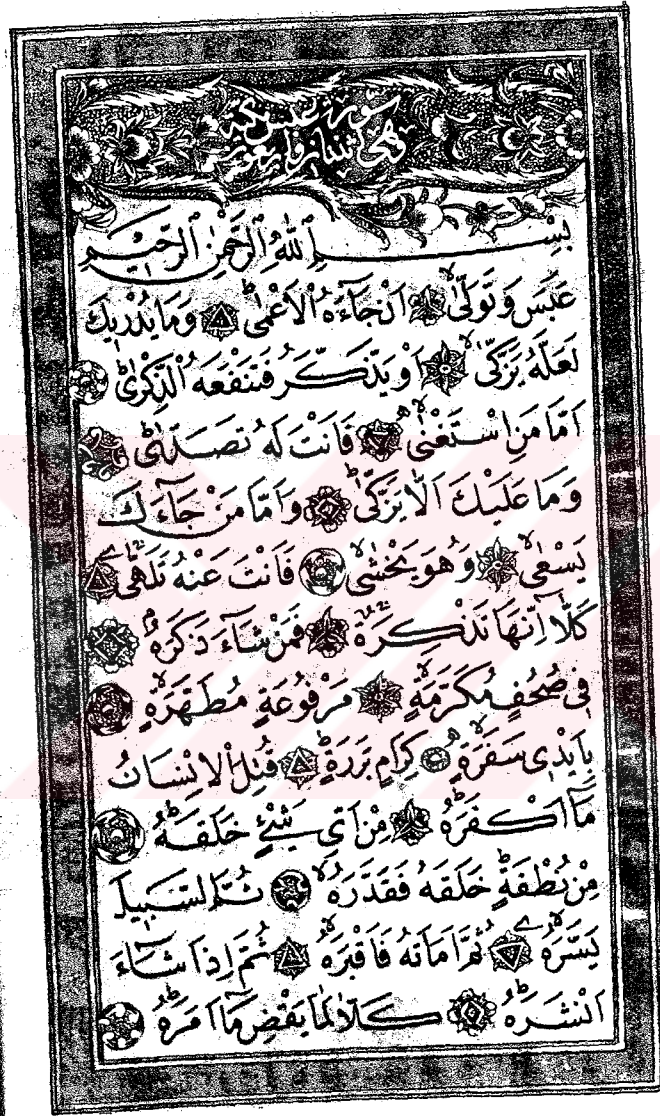 سورة عبس مكية
وهي اثنتان واربعون
بِسْمِ اللّٰهِ الرَّحْمٰنِ الرَّحِيمِ
عَبَسَ وَتَوَلّٰى اَنْ جَاءَهُ الْاَعْمٰى وَمَا يُدْرِيكَ
لَعَلَّهُ يَزَّكّٰى اَوْ يَذَّكَّرُ فَتَنْفَعَهُ الذِّكْرٰى
اَمَّا مَنِ اسْتَغْنٰى فَاَنْتَ لَهُ تَصَدّٰى
وَمَا عَلَيْكَ اَلَّا يَزَّكّٰى وَاَمَّا مَنْ جَاءَكَ
يَسْعٰى وَهُوَ يَخْشٰى فَاَنْتَ عَنْهُ تَلَهّٰى
كَلَّا اِنَّهَا تَذْكِرَةٌ فَمَنْ شَاءَ ذَكَرَهُ
فِي صُحُفٍ مُكَرَّمَةٍ مَرْفُوعَةٍ مُطَهَّرَةٍ
بِاَيْدِي سَفَرَةٍ كِرَامٍ بَرَرَةٍ قُتِلَ الْاِنْسَانُ
مَا اَكْفَرَهُ مِنْ اَيِّ شَيْءٍ خَلَقَهُ
مِنْ نُطْفَةٍ خَلَقَهُ فَقَدَّرَهُ ثُمَّ السَّبِيلَ
يَسَّرَهُ ثُمَّ اَمَاتَهُ فَاَقْبَرَهُ ثُمَّ اِذَا شَاءَ
اَنْشَرَهُ كَلَّا لَمَّا يَقْضِ مَا اَمَرَهُ